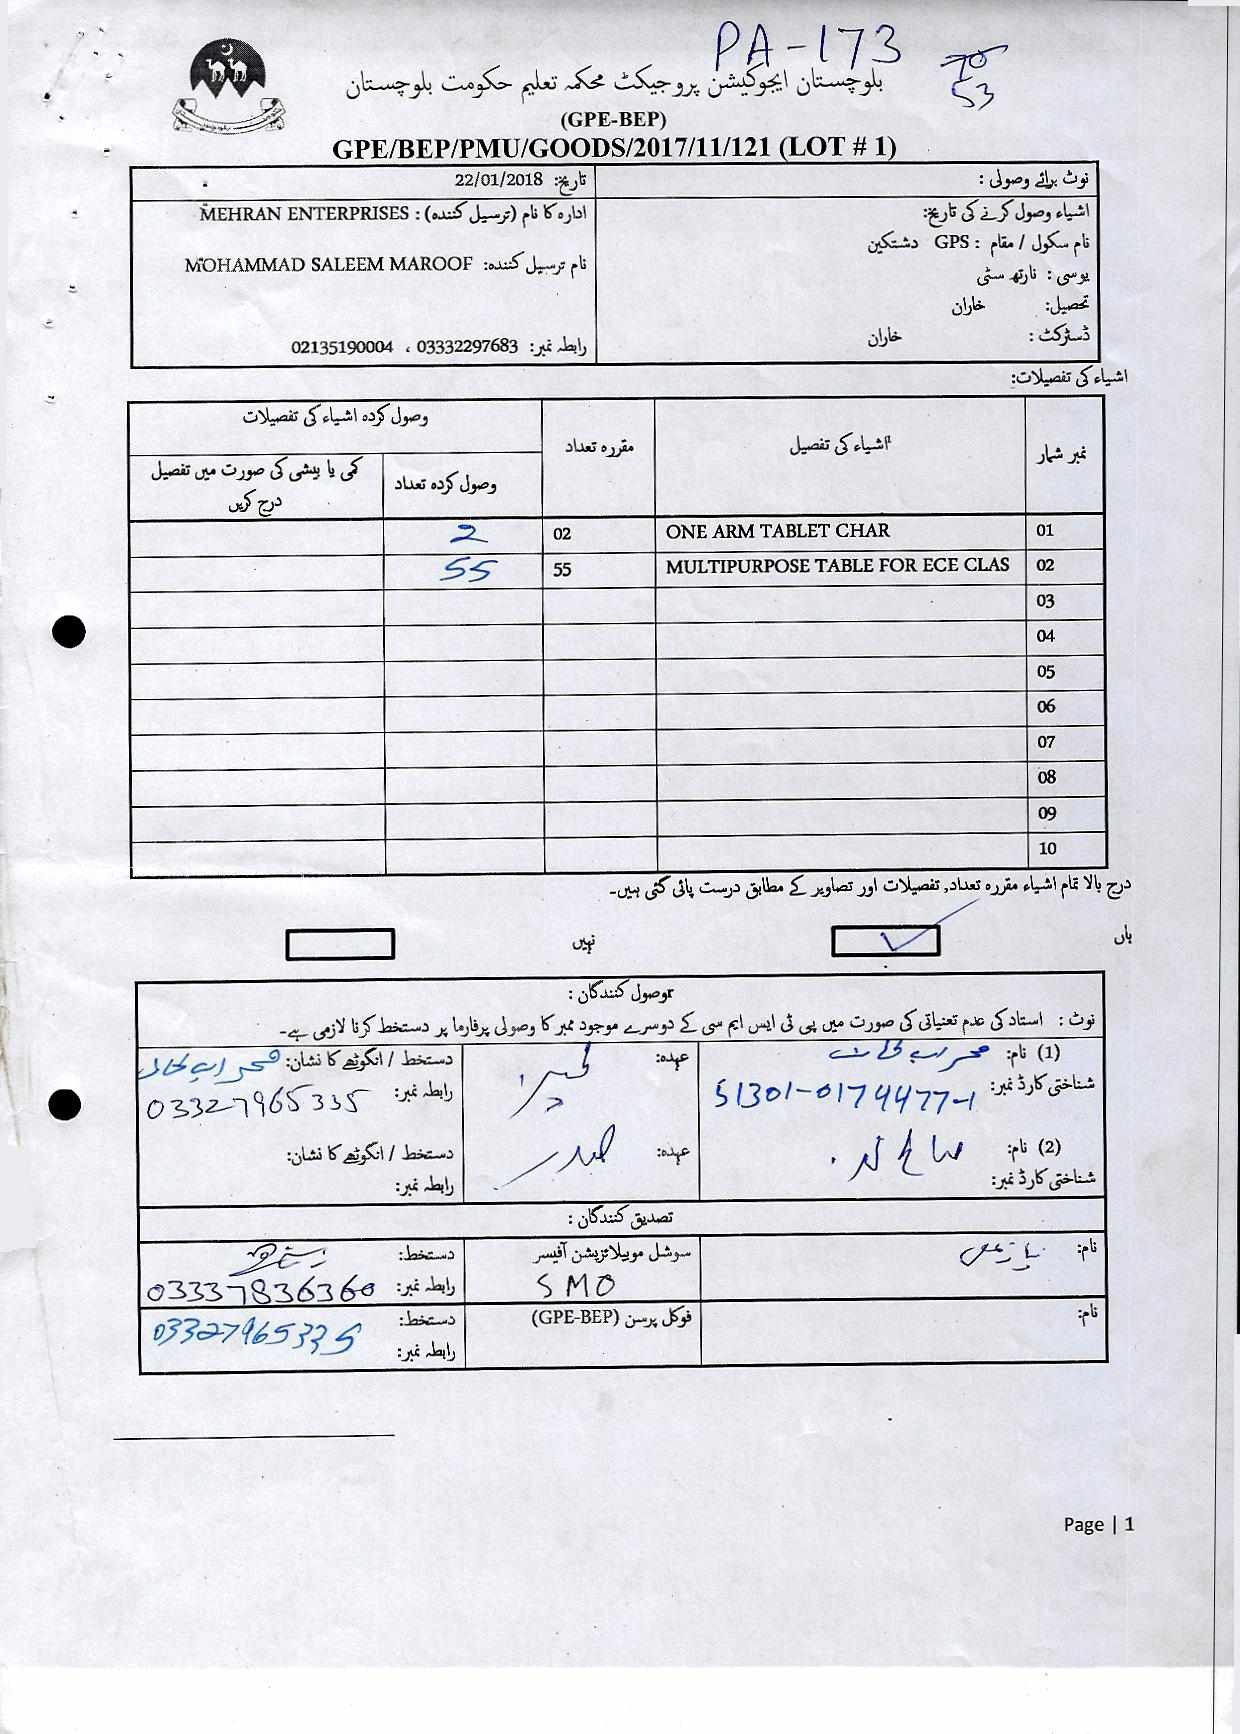 PA-173
53
بلوچستان ایجوکیشن پروجیکٹ محکمہ تعلیم حکومت بلوچستان
(GPE-BEP)
GPE/BEP/PMU/GOODS/2017/11/121 (LOT # 1)
نوٹ برائے وصولی :
تاریخ: 22/01/2018
اشیاء وصول کرنے کی تاریخ:
نام سکول / مقام : GPS دشتکین
یوسی : نارتھ سٹی
تحصیل: خاران
ڈسٹرکٹ : خاران
ادارہ کا نام (ترسیل کنندہ) : MEHRAN ENTERPRISES
نام ترسیل کنندہ: MOHAMMAD SALEEM MAROOF
رابطہ نمبر: 03332297683 ، 02135190004
اشیاء کی تفصیلات:
نمبر شمار اشیاء کی تفصیل مقررہ تعداد وصول کردہ اشیاء کی تفصیلات
وصول کردہ تعداد کمی یا بیشی کی صورت میں تفصیل درج کریں
01 ONE ARM TABLET CHAR 02 2
02 MULTIPURPOSE TABLE FOR ECE CLAS 55 55
03
04
05
06
07
08
09
10
درج بالا تمام اشیاء مقررہ تعداد, تفصیلات اور تصاویر کے مطابق درست پائی گئی ہیں۔
ہاں نہیں
وصول کنندگان :
نوٹ : استاد کی عدم تعنیاتی کی صورت میں پی ٹی ایس ایم سی کے دوسرے موجود ممبر کا وصولی پرفارما پر دستخط کرنا لازمی ہے۔
(1) نام: عہدہ: دستخط / انگوٹھے کا نشان:
شناختی کارڈ نمبر: 51301-0174477-1 رابطہ نمبر: 03327965335
(2) نام: عہدہ: دستخط / انگوٹھے کا نشان:
شناختی کارڈ نمبر: رابطہ نمبر:
تصدیق کنندگان :
نام: سوشل موبیلائزیشن آفیسر دستخط:
SMO رابطہ نمبر: 03337836360
نام: فوکل پرسن (GPE-BEP) دستخط:
رابطہ نمبر: 03327965335
Page | 1